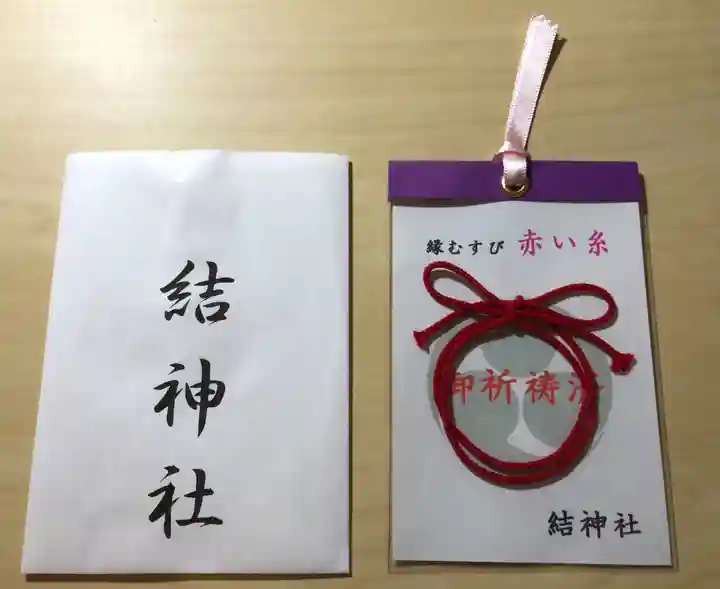 結神社
縁むすび 赤い糸
御祈祷済
結神社